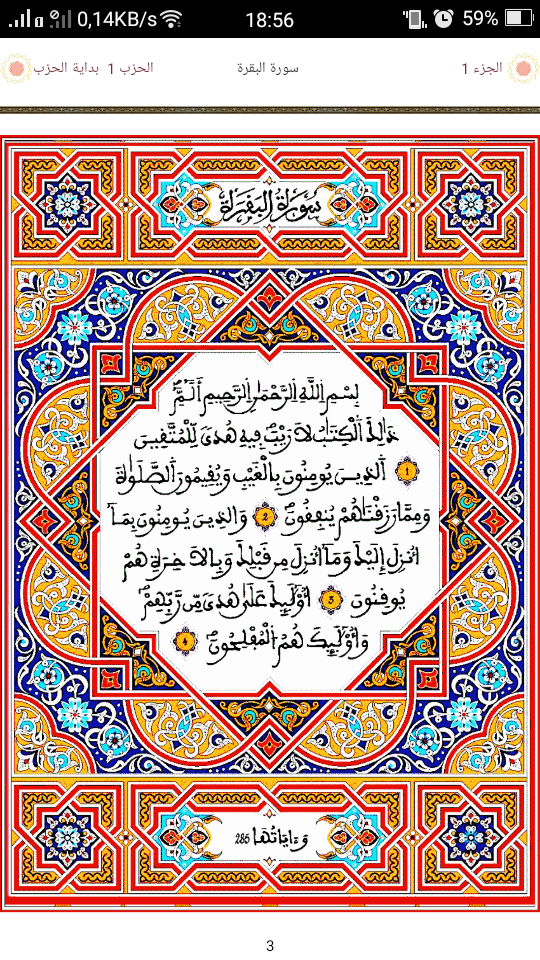 0,14KB/s 18:56 59%
الجزء 1 سورة البقرة الحزب 1 بداية الحزب
سُورَةُ البَقَرَةِ
بِسْمِ اللَّهِ الرَّحْمَٰنِ الرَّحِيمِ أَلَٓمِّٓۖ
ذَٰلِكَ اَ۬لْكِتَٰبُ لَا رَيْبَۖ فِيهِ هُدىٗ لِّلْمُتَّقِينَ
1 اَ۬لذِينَ يُومِنُونَ بِالْغَيْبِ وَيُقِيمُونَ اَ۬لصَّلَوٰةَ
وَمِمَّا رَزَقْنَٰهُمْ يُنفِقُونَۖ 2 وَالذِينَ يُومِنُونَ بِمَآ
أُنزِلَ إِلَيْكَ وَمَآ أُنزِلَ مِن قَبْلِكَ وَبِالَاخِرَةِ هُمْ
يُوقِنُونَۖ 3 أُوْلَٰٓئِكَ عَلَىٰ هُدىٗ مِّن رَّبِّهِمْۖ
وَأُوْلَٰٓئِكَ هُمُ اُ۬لْمُفْلِحُونَۖ 4
وَءَايَاتُهَا 285
3